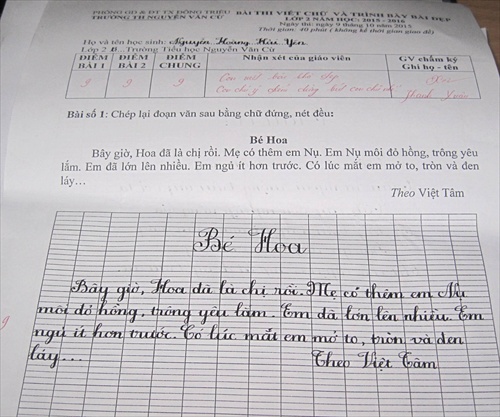 PHÒNG GD & ĐT TX ĐÔNG TRIỀU BÀI THI VIẾT CHỮ VÀ TRÌNH BÀY BÀI ĐẸP
TRƯỜNG TH NGUYỄN VĂN CỪ LỚP 2 NĂM HỌC: 2015 - 2016
Ngày thi: ngày 9 tháng 10 năm 2015
Thời gian: 40 phút ( không kể thời gian giao đề)
Họ và tên học sinh: Nguyễn Hoàng Hải Yến
Lớp 2 B...Trường Tiểu học Nguyễn Văn Cừ
ĐIỂM BÀI 1 ĐIỂM BÀI 2 ĐIỂM CHUNG Nhận xét của giáo viên GV chấm ký Ghi họ - tên
9 9 9 Con viết
Con chú ý
Bài số 1: Chép lại đoạn văn sau bằng chữ đứng, nét đều:
Bé Hoa
Bây giờ, Hoa đã là chị rồi. Mẹ có thêm em Nụ. Em Nụ môi đỏ hồng, trông yêu
lắm. Em đã lớn lên nhiều. Em ngủ ít hơn trước. Có lúc mắt em mở to, tròn và đen
láy…
Theo Việt Tâm
Bé Hoa
Bây giờ, Hoa đã là chị rồi. Mẹ có thêm em Nụ
môi đỏ hồng, trông yêu lắm. Em đã lớn lên nhiều. Em
ngủ ít hơn trước. Có lúc mắt em mở to, tròn và đen
láy...
Theo Việt Tâm
9